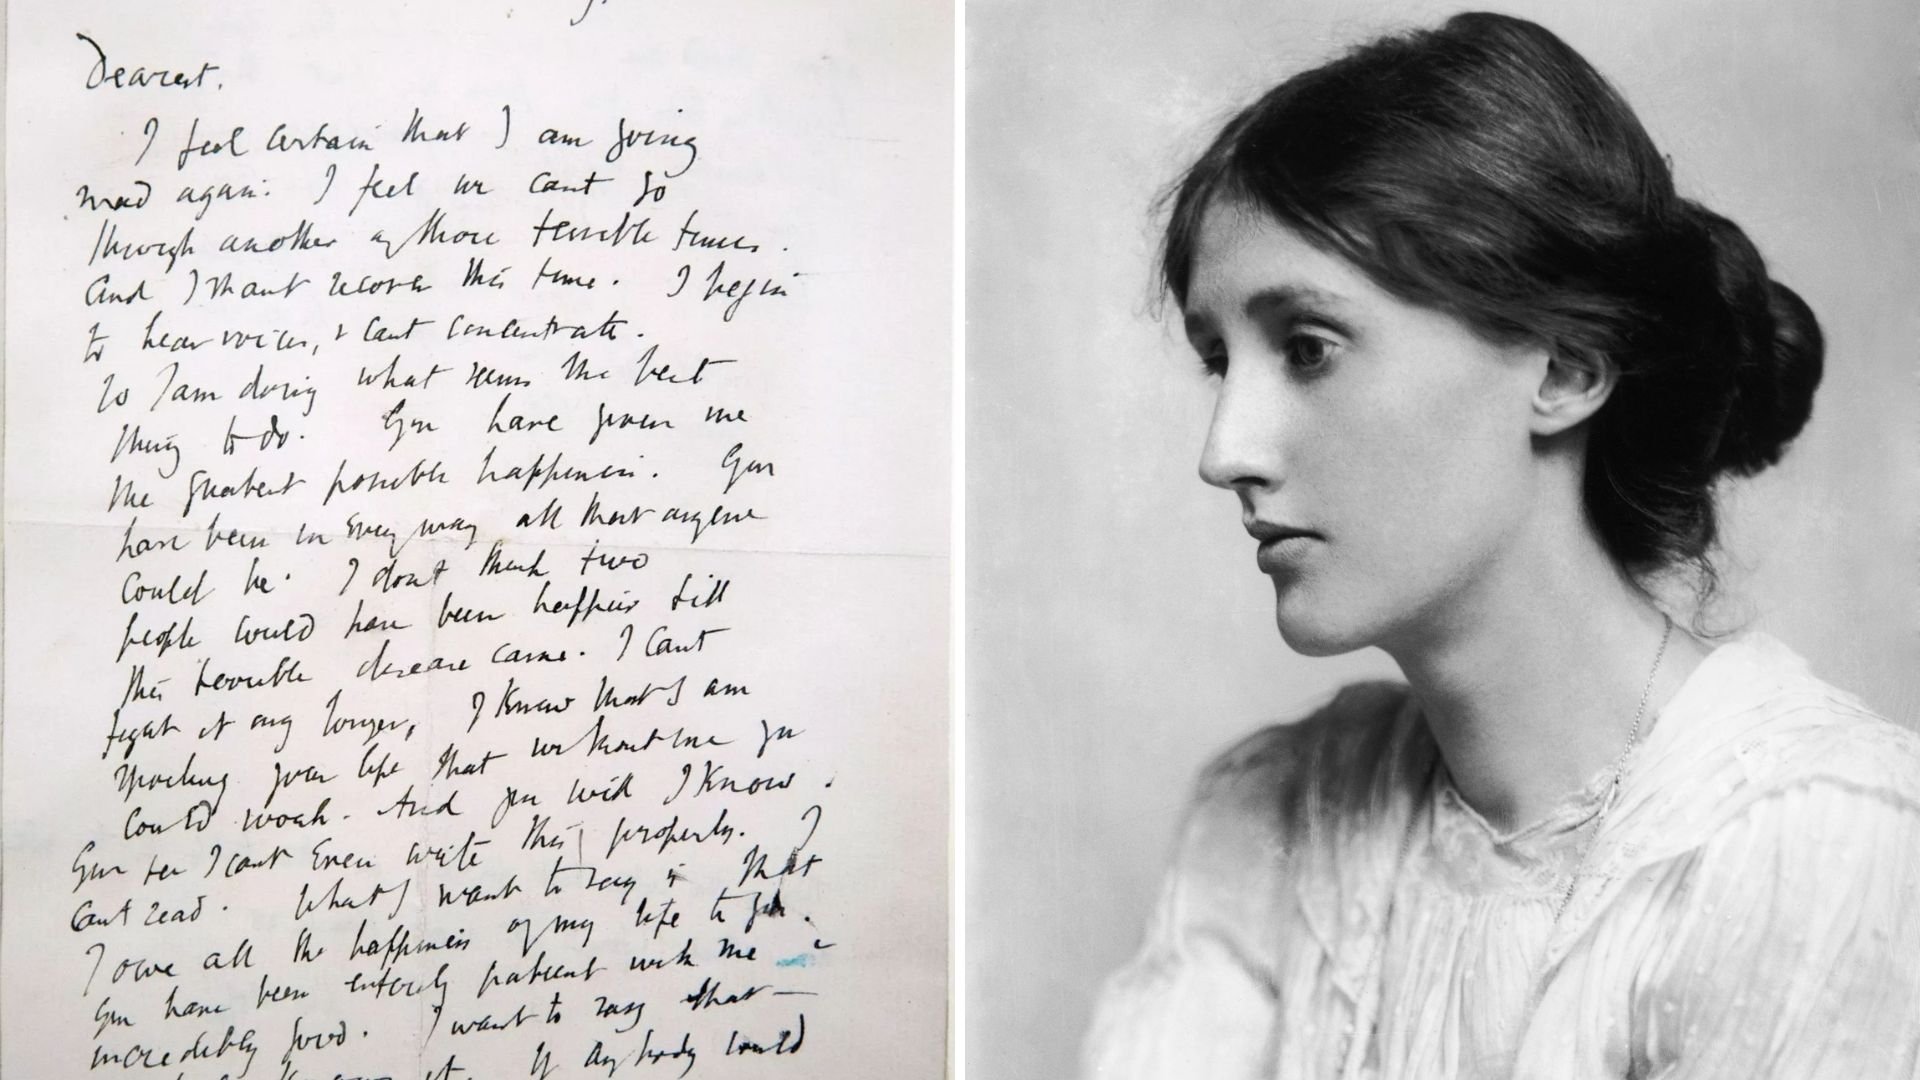 Dearest.
I feel certain that I am going
mad again: I feel we cant go
through another of those terrible times.
And I shant recover this time. I begin
to hear voices, & cant concentrate.
So I am doing what seems the best
thing to do. You have given me
the greatest possible happiness. You
have been in every way all that anyone
could be. I dont think two
people could have been happier till
this terrible disease came. I cant
fight it any longer, I know that I am
spoiling your life that without me you
could work. And you will I know.
You see I cant even write this properly. I
cant read. What I want to say is that
I owe all the happiness of my life to you.
You have been entirely patient with me &
incredibly good. I want to say that –
it. If anybody could